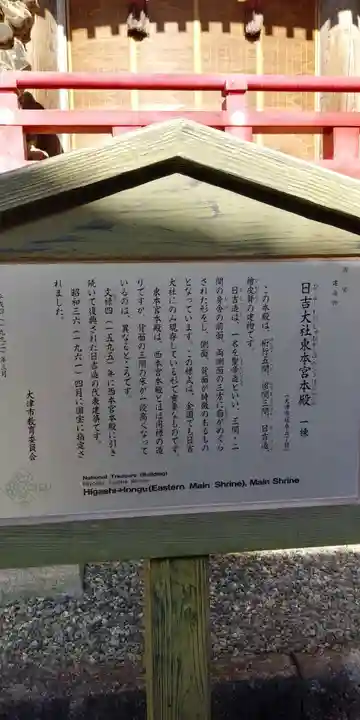 国宝
建造物
日吉大社東本宮本殿 一棟
(大津市坂本五丁目)
この本殿は、桁行五間、梁間三間、日吉造、
檜皮葺の建物です。
日吉造は、一名を聖帝造といい、三間・二
間の身舎の前面、両側面の三方に廂がめぐら
された形をし、側面、背面が特徴あるもの
となっています。この様式は、全国でも日吉
大社にのみ現存している形で貴重なものです。
東本宮本殿は、西本宮本殿とほぼ同様の造
りですが、背面の三間の床が一段高くなって
いるのは、異なるところです。
文禄四(一五九五)年に西本宮本殿に引き
続いて復興された日吉造の代表建築です。
昭和三六(一九六一)四月に国宝に指定さ
れました。
大津市教育委員会
National Treasure (Building)
Higashi-Hongu(Eastern Main Shrine), Main Shrine